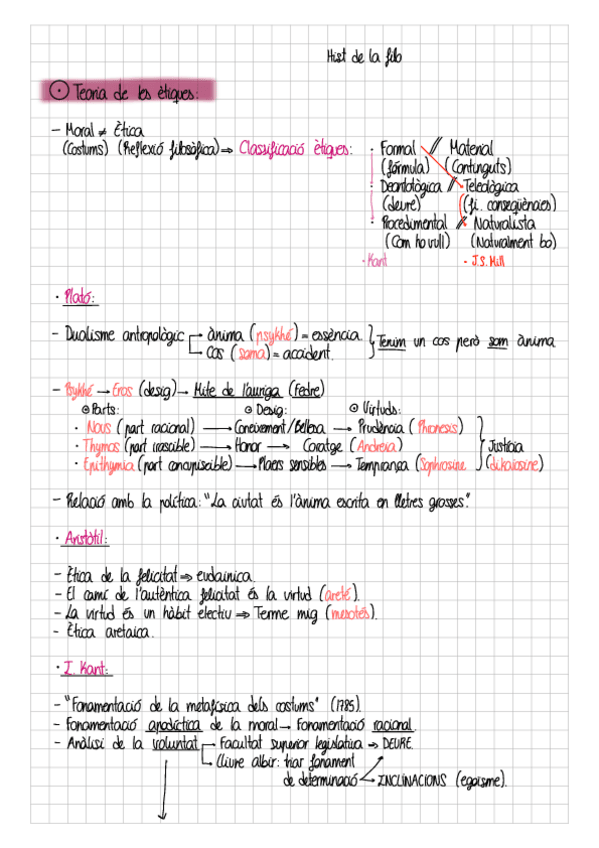 Hist de la filo
Teoria de les ètiques:
- Moral ≠ Ètica
(Costums) (Reflexió filosòfica) ⇒ Classificació ètiques:
· Formal // Material
(fórmula) (Continguts)
· Deontològica // Teleològica
(deure) (fi. conseqüències)
· Procedimental // Naturalista
(Com ho vull) (Naturalment bo)
· Kant · J.S. Mill
· Plató:
- Dualisme antropològic → ànima (psykhé) = essència. } Tenim un cos però som ànima
→ Cos (soma) = accident.
- Psykhé → Eros (desig) → Mite de l'auriga (Fedre)
Parts: Desig: Virtuds:
· Nous (part racional) → Coneixement/Bellesa → Prudència (Phronesis)
· Thymos (part irascible) → Honor → Coratge (Andreia) } Justícia
· Epithymia (part concupiscible) → Plaers sensibles → Temprança (Sophrosine (dikaiosine)
- Relació amb la política: "La ciutat és l'ànima escrita en lletres grosses".
· Aristòtil:
- Ètica de la felicitat ⇒ eudainica.
- El camí de l'autèntica felicitat és la virtud (areté).
- La virtud és un hàbit electiu ⇒ Terme mig (mesotés).
- Ètica aretaica.
· I. Kant:
- "Fonamentació de la metafísica dels costums" (1785).
- Fonamentació apodíctica de la moral → Fonamentació racional.
- Anàlisi de la voluntat → Facultat superior legislativa ⇒ DEURE.
→ Lliure albir: triar fonament
de determinació ← INCLINACIONS (egoisme).